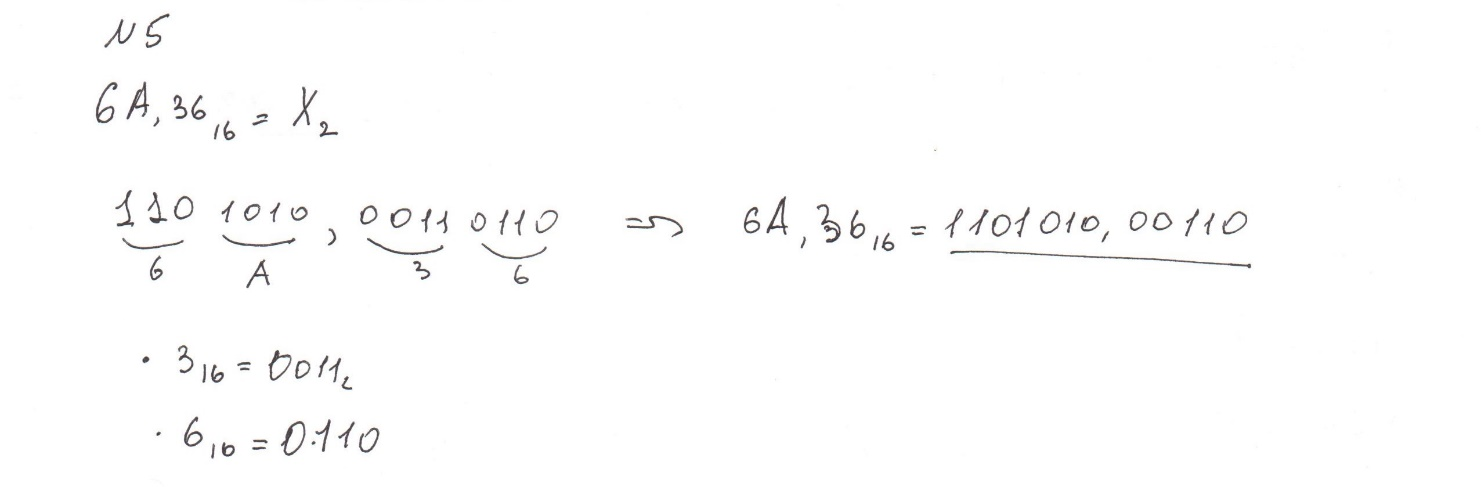 N5
6A,36₁₆ = X₂
110 1010, 0011 0110 => 6A,36₁₆ = 1101010, 00110
6 A 3 6
· 3₁₆ = 0011₂
· 6₁₆ = 0.110